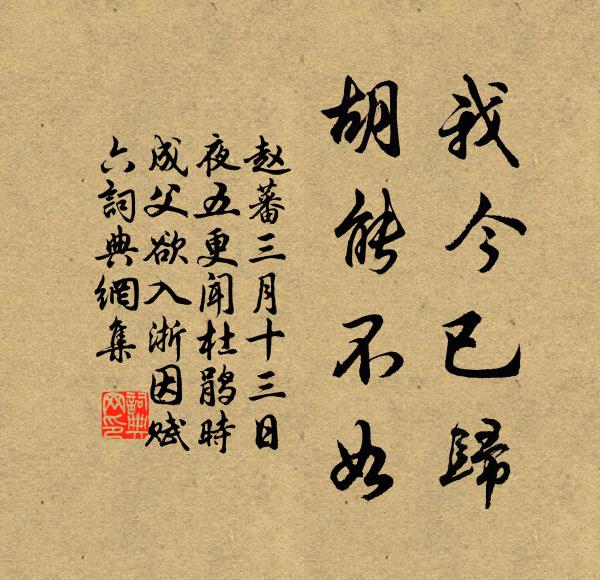 我今已歸
胡能不如
赵蕃三月十三日
夜五更闻杜鹃時
成父欲入浙因赋
六詞典網集
詞典
网印